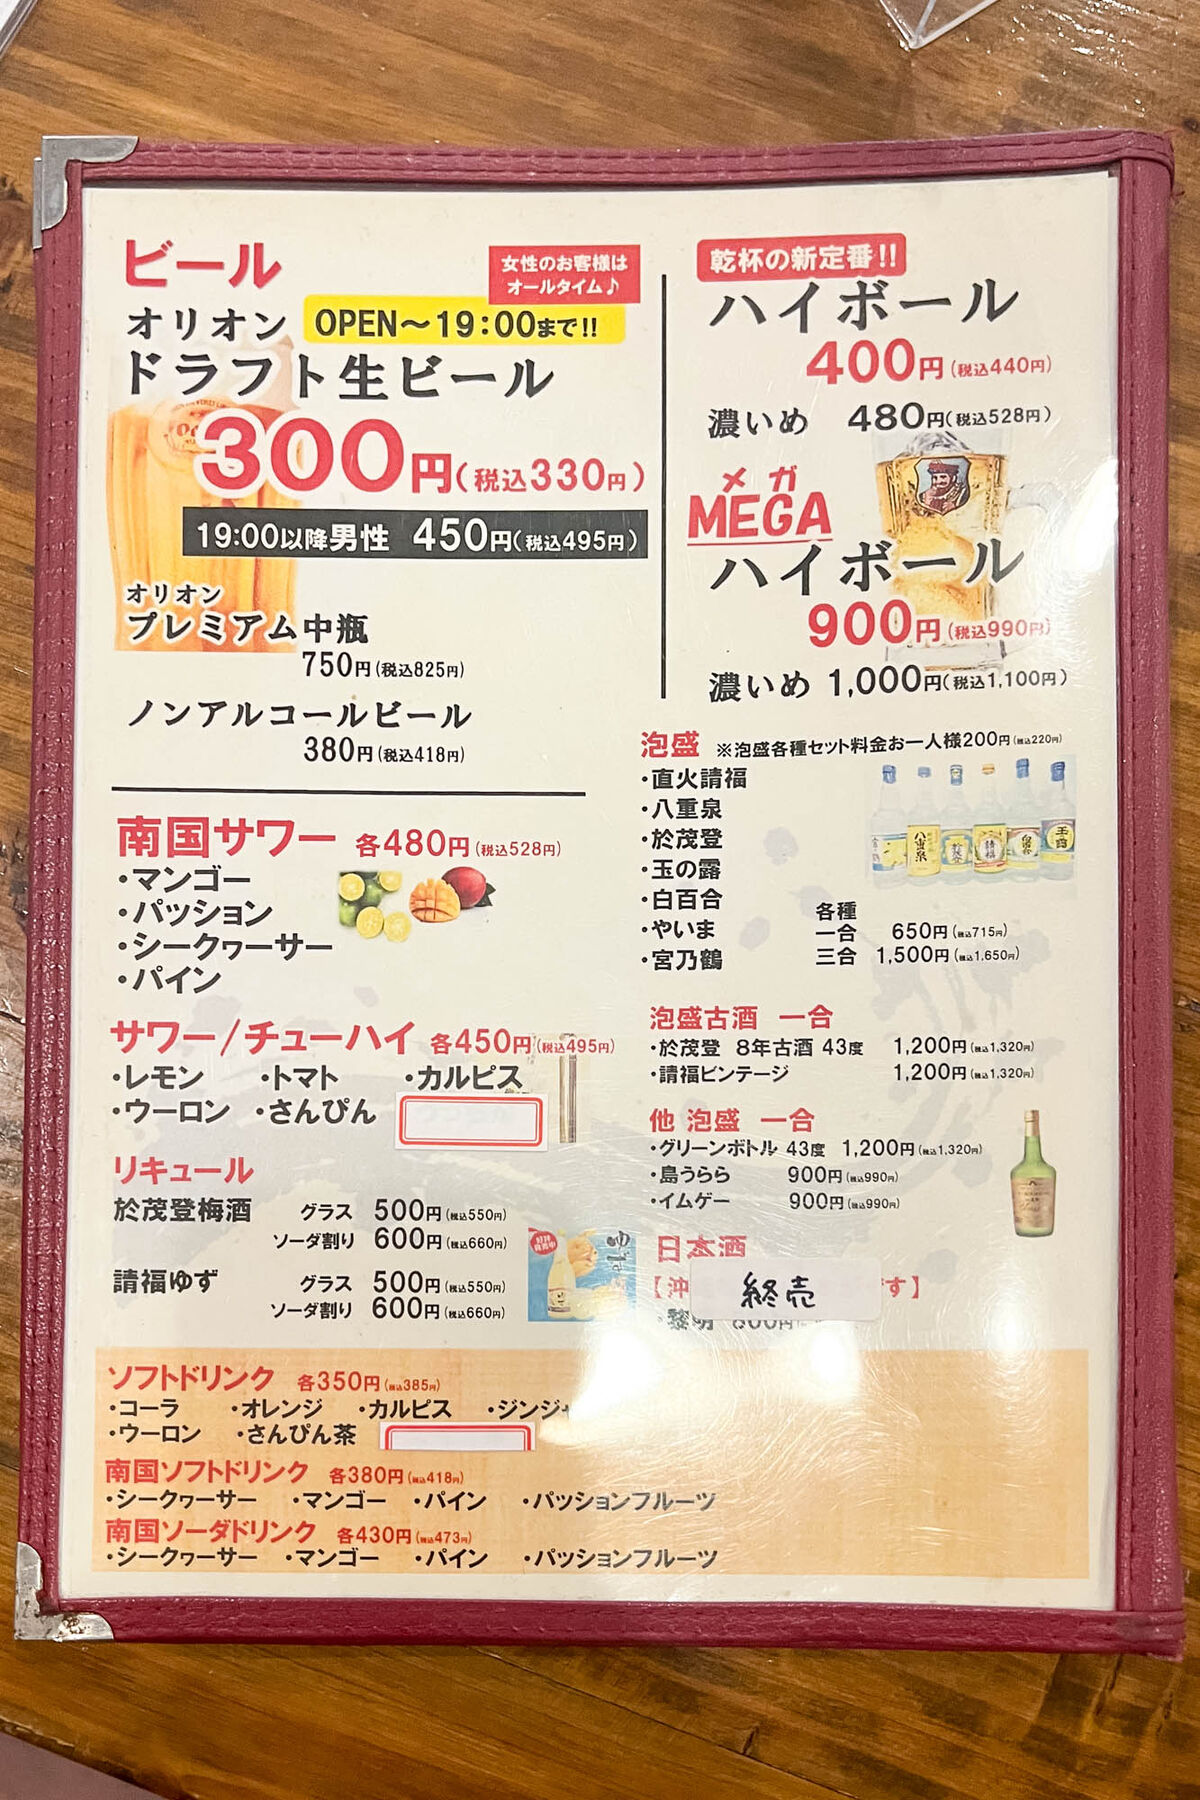 ビール
女性のお客様は
オールタイム♪
オリオン
OPEN～19:00まで!!
ドラフト生ビール
300円(税込330円)
19:00以降男性 450円(税込495円)
オリオン
プレミアム中瓶
750円(税込825円)
ノンアルコールビール
380円(税込418円)
乾杯の新定番!!
ハイボール
400円(税込440円)
濃いめ 480円(税込528円)
メガ
MEGA
ハイボール
900円(税込990円)
濃いめ 1,000円(税込1,100円)
南国サワー 各480円(税込528円)
・マンゴー
・パッション
・シークヮーサー
・パイン
サワー/チューハイ 各450円(税込495円)
・レモン ・トマト ・カルピス
・ウーロン ・さんぴん
リキュール
於茂登梅酒 グラス 500円(税込550円)
ソーダ割り 600円(税込660円)
請福ゆず グラス 500円(税込550円)
ソーダ割り 600円(税込660円)
泡盛 ※泡盛各種セット料金お一人様200円(税込220円)
・直火請福
・八重泉
・於茂登
・玉の露
・白百合
・やいま
・宮乃鶴
各種
一合 650円(税込715円)
三合 1,500円(税込1,650円)
八重泉
請福
白百合
玉の露
泡盛古酒 一合
・於茂登 8年古酒 43度 1,200円(税込1,320円)
・請福ビンテージ 1,200円(税込1,320円)
他 泡盛 一合
・グリーンボトル 43度 1,200円(税込1,320円)
・島うらら 900円(税込990円)
・イムゲー 900円(税込990円)
日本酒
【沖 す】
終売
・黎明 800円
ソフトドリンク 各350円(税込385円)
・コーラ ・オレンジ ・カルピス ・ジンジャ
・ウーロン ・さんぴん茶
南国ソフトドリンク 各380円(税込418円)
・シークヮーサー ・マンゴー ・パイン ・パッションフルーツ
南国ソーダドリンク 各430円(税込473円)
・シークヮーサー ・マンゴー ・パイン ・パッションフルーツ